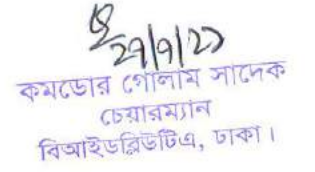 27/9/27
কমডোর গোলাম সাদেক
চেয়ারম্যান
বিআইডব্লিউটিএ, ঢাকা।